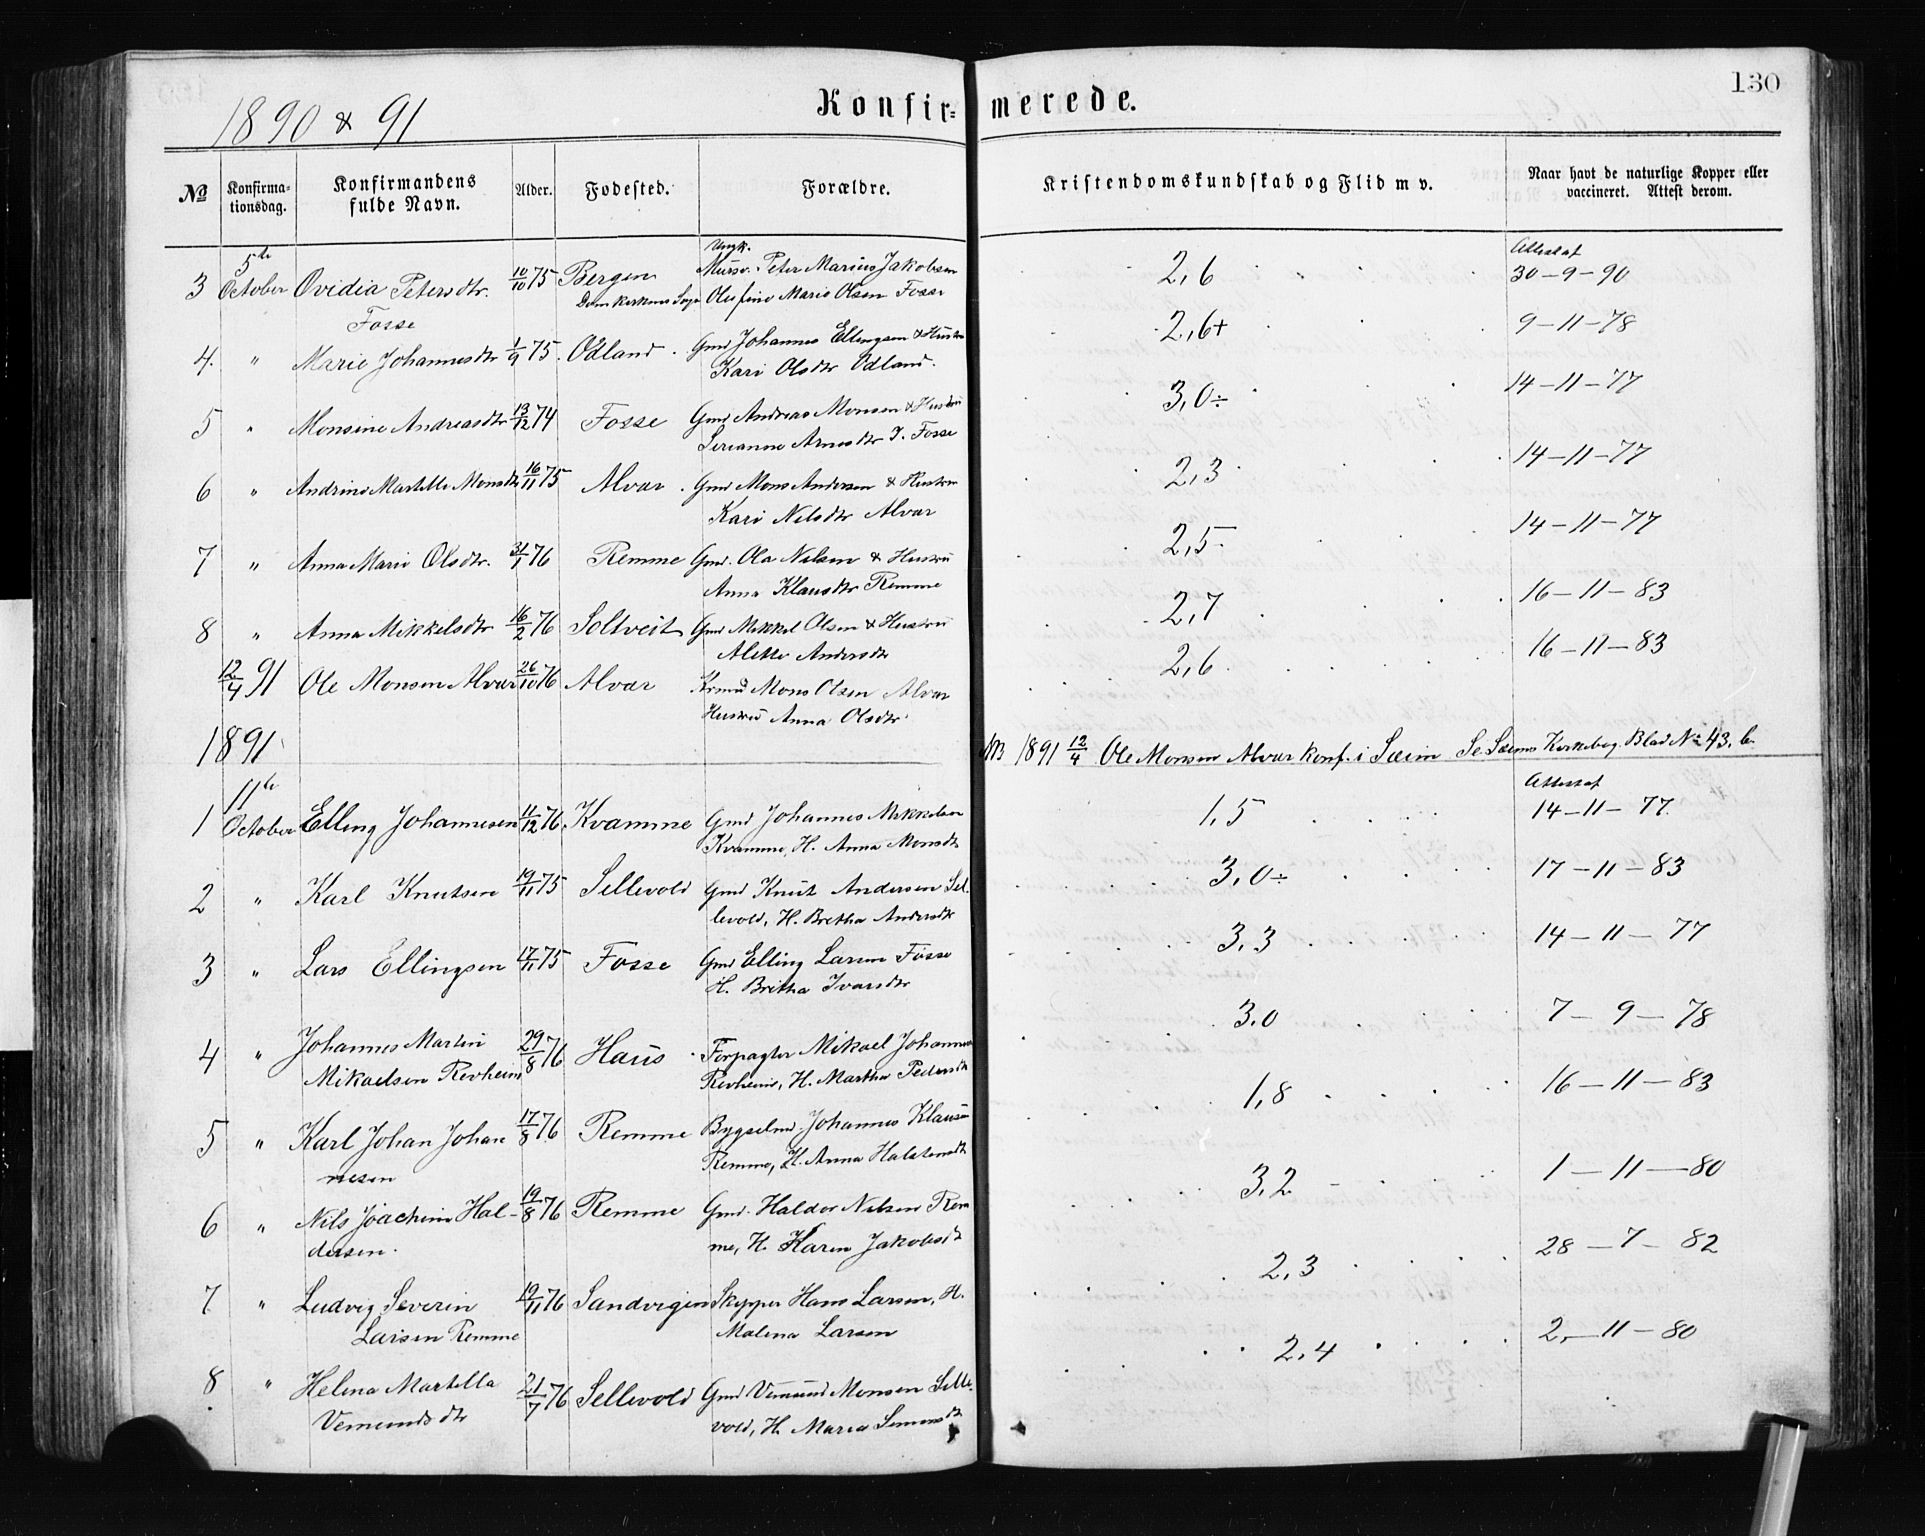 1890 & 91
Konfir=merede.
130
№ Konfirma-tionsdag. Konfirmandens fulde Navn. Alder. Fødested. Forældre. Kristendomskundskab og Flid m v. Naar havt de naturlige Kopper eller vaccineret. Attest derom.
5te Ungk. Attestat
3 October Ovidia Petersdtr. 10/10 75 Bergen Peter Marius Jakobsen 2,6 30-9-90
Fosse Domkirkens Sogn Olufine Marie Olsen Fosse
4. " Marie Johannesdtr 1/9 75. Odland. Gmd Johannes Ellingsen & Hustru 2,6+ 9-11-78
Kari Olsdtr Odland.
5 " Monsine Andreasdtr 13/12 74 Fosse Gmd Andreas Monsen & Hustru 3,0÷ 14-11-77
Arnesdtr Fosse
6 " Andrine Martille Monsdtr 16/11 75 Alvær. Gmd Mons Andersen & Hustru 2,3 14-11-77
Kari Nilsdtr Alvær
7 " Anna Marie Olsdtr. 31/1 76 Remme Gmd. Ola Nilsen & Hustru 2,5 14-11-77
Anna Klausdtr Remme
8 " Anna Mikkelsdtr 16/2 76 Soltveit Gmd Mikkel Olsen & Hustru 2,7 16-11-83
Alette Andersdtr
12/4 91 Ole Monsen Alvær 26/10 76 Alvær Mons Olsen Alvær 2,6 16-11-83
Hustru Anna Olsdtr
1891 NB 1891 12/4 Ole Monsen Alvær konf. i Sæim Se Sæims Kirkebog Blad № 43, b.
11te Attestat
1 October Elling Johannesen 11/12 76. Kvamme Gmd Johannes Mikkelsen 1,5 14-11-77.
Kvamme, H. Anna Monsdtr
2 " Karl Knutsen 19/11 75 Sellevold Gmd Knut Andersen Sel- 3,0÷ 17-11-83
levold, H. Bretha Andersdtr
3 " Lars Ellingsen 17/11 75 Fosse Gmd Elling Larsen Fosse 3,3 14-11-77
H. Britha Ivarsdtr
4 " Johannes Martin 29/8 76 Haus Forpagter Mikael Johannesen 3,0 7-9-78
Mikaelsen Revheim Revheim, H. Martha Pedersdtr
5 " Karl Johan Johan 17/8 76 Remme Bygselmd. Johannes Klausen 1,8 16-11-83
nesen Remme, H. Anna Halstensdtr
6 " Nils Joachim Hal- 19/8 76 Remme Gmd. Haldor Nilsen Rem 3,2 1-11-80
dersen. me, H. Karen Jakobsdtr
7 " Ludvig Severin 19/11 76 Sandvigen Skipper Hans Larsen, H. 2,3 28-7-82
Larsen Remme Malena Larsen
8 " Helena Martella 21/7 76 Sellevold Gmd Vemund Monsen Selle- 2,4 2-11-80
Vemundsdtr vold, H. Maria Simonsdtr